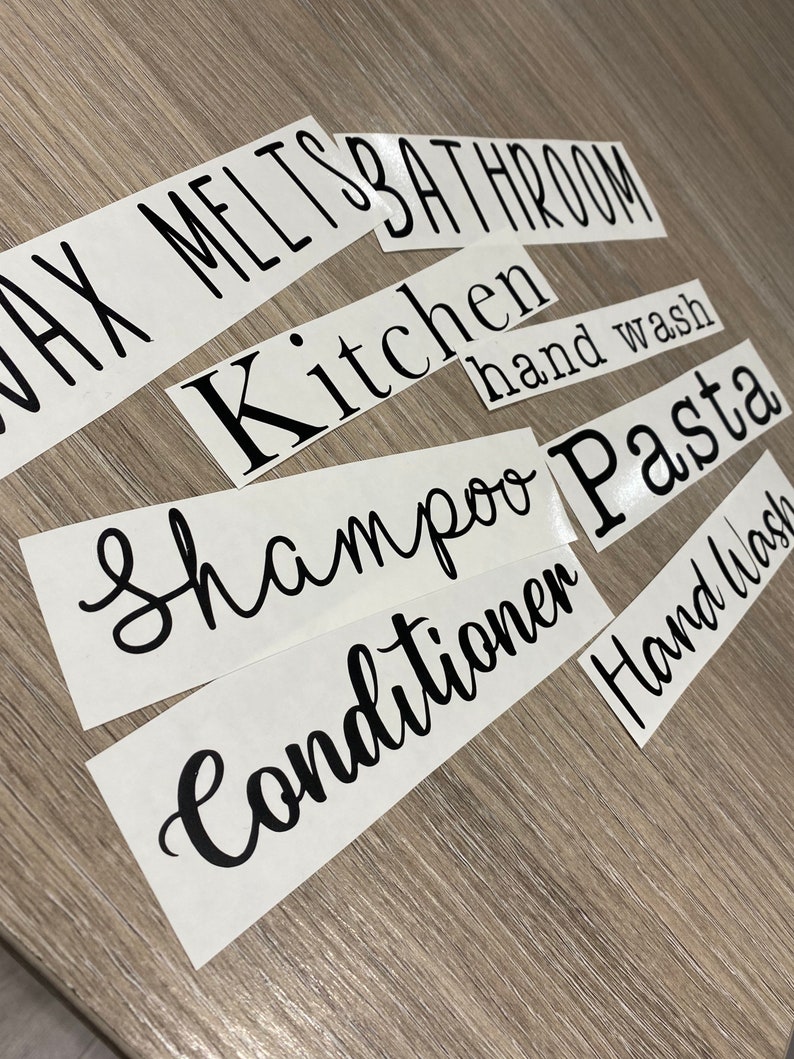 WAX MELTS
BATHROOM
Kitchen
hand wash
Pasta
Shampoo
Hand Wash
Conditioner